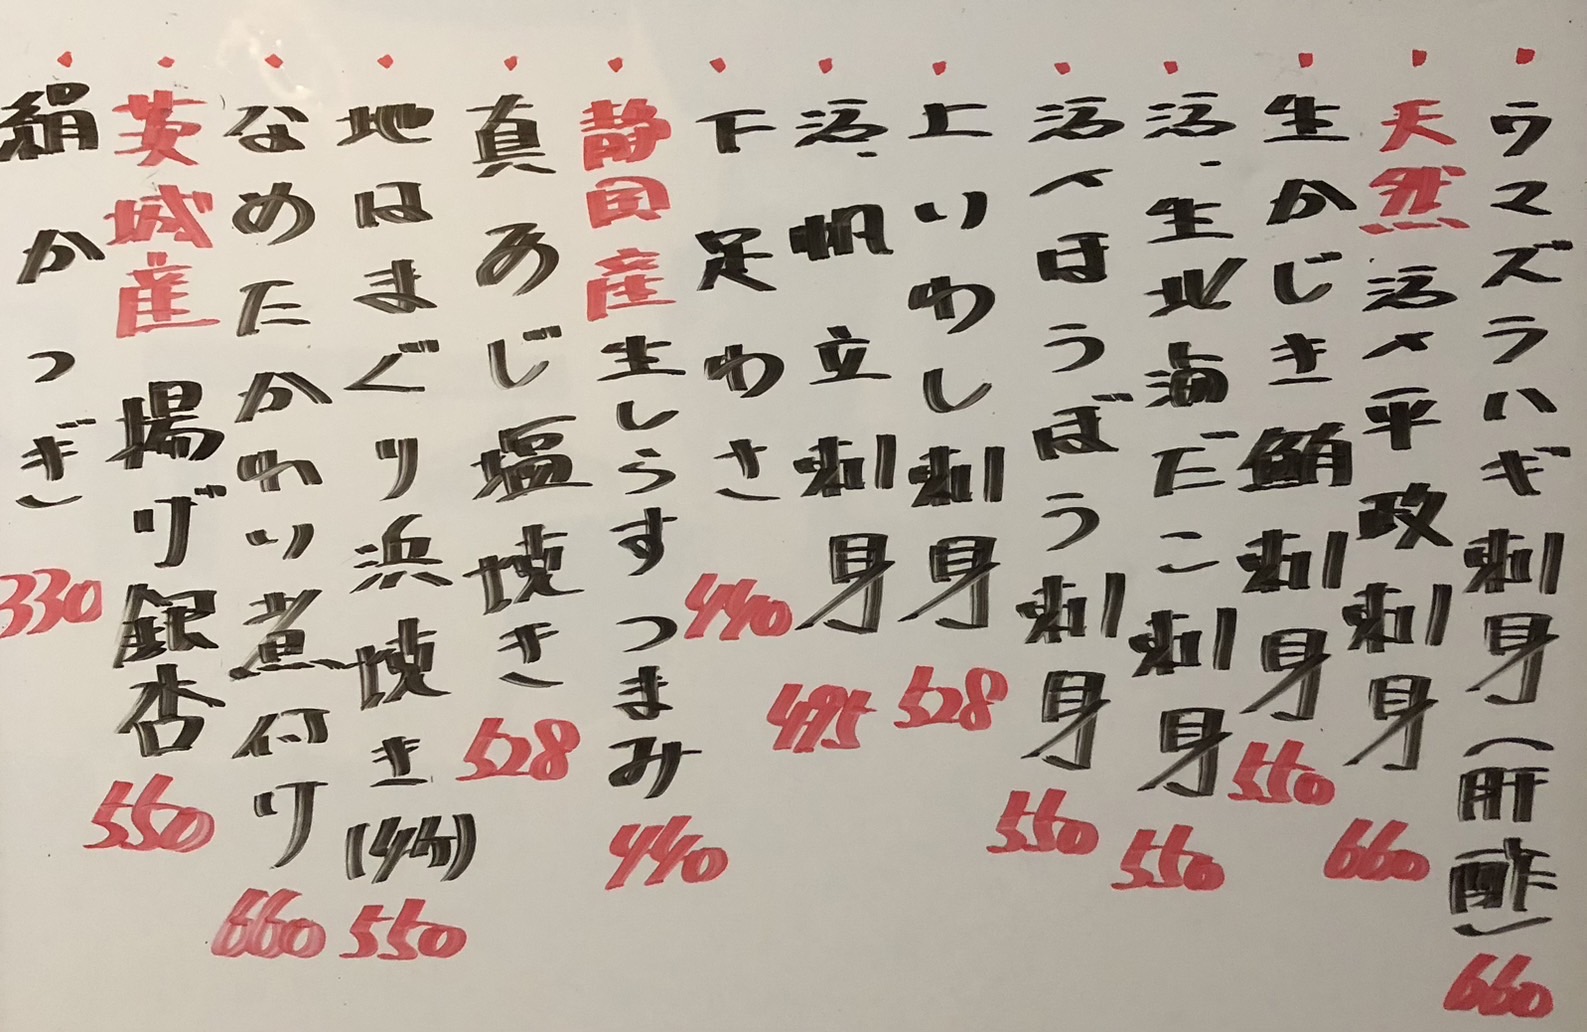 ・ウマズラハギ刺身(肝酢) 660
・天然 活〆平政刺身 660
・生かじき鮪刺身 550
・活、生北海だこ刺身 550
・活〆ほうぼう刺身 550
・上いわし刺身 528
・活、帆立刺身 495
・下足わさ 440
・静岡産生しらすつまみ 440
・真あじ塩焼き 528
・地はまぐり浜焼き(4ケ) 550
・なめたかれい煮付け 660
・茨城産 揚げ銀杏 550
・絹かつぎ 330